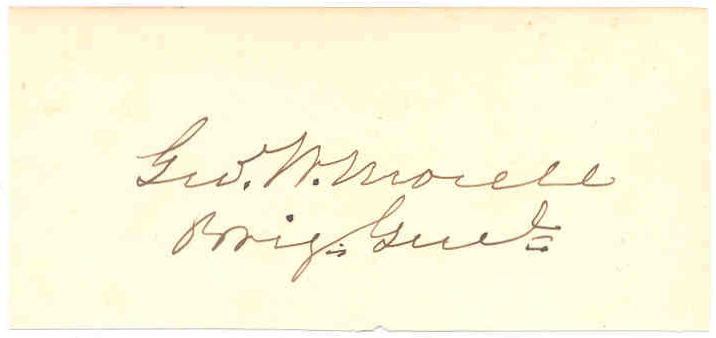 Geo. W. Morell
Brig. Genl.